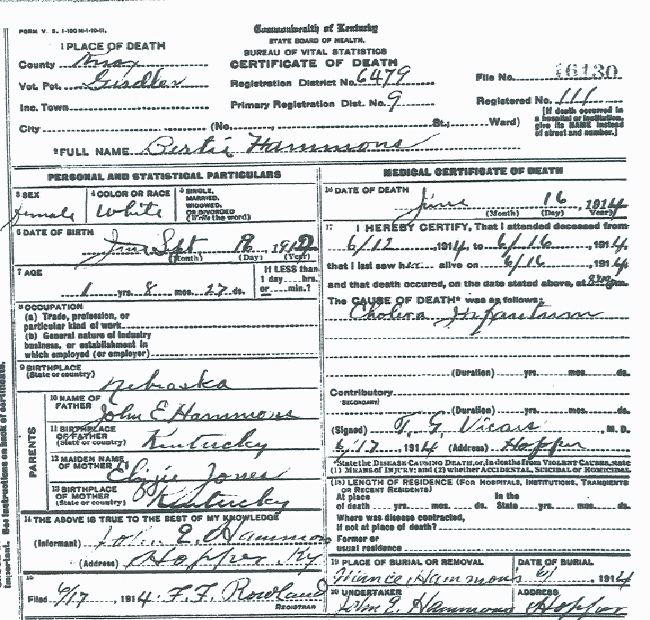 FORM V. S. 1-100M-1-20-11.
Commonwealth of Kentucky
STATE BOARD OF HEALTH.
BUREAU OF VITAL STATISTICS
CERTIFICATE OF DEATH
1 PLACE OF DEATH
County Knox
Vot. Pct. Girdler
Registration District No. 6479
File No. 16130
Inc. Town
Primary Registration Dist. No. 9
Registered No. 111
City (No. St.; Ward)
(If death occurred in a hospital or institution, give its NAME instead of street and number.)
2 FULL NAME Bertie Hammons
PERSONAL AND STATISTICAL PARTICULARS
3 SEX
female
4 COLOR OR RACE
White
5 SINGLE, MARRIED, WIDOWED OR DIVORCED
(Write the word)
6 DATE OF BIRTH
Sept 191
(Month) (Day) (Year)
7 AGE
1 yrs. 8 mos. 27 ds.
If LESS than 1 day hrs. or min.?
8 OCCUPATION
(a) Trade, profession, or particular kind of work
(b) General nature of industry business, or establishment in which employed (or employer)
9 BIRTHPLACE
(State or country)
Nebraska
PARENTS
10 NAME OF FATHER
John E Hammons
11 BIRTHPLACE OF FATHER
(State or country)
Kentucky
12 MAIDEN NAME OF MOTHER
Jones
13 BIRTHPLACE OF MOTHER
(State or country)
Kentucky
14 THE ABOVE IS TRUE TO THE BEST OF MY KNOWLEDGE
(Informant) John E. Hammons
(Address) Hopper Ky
15
Filed 6/17, 1914. F. F. Rowland
REGISTRAR
MEDICAL CERTIFICATE OF DEATH
16 DATE OF DEATH
June 16, 1914
(Month) (Day) (Year)
17 I HEREBY CERTIFY, That I attended deceased from
6/12, 1914, to 6/16, 1914,
that I last saw her alive on 6/16, 1914,
and that death occured, on the date stated above, at
The CAUSE OF DEATH* was as follows:
Cholera Infantum
(Duration) yrs. mos. ds.
Contributory
SECONDARY)
(Duration) yrs. mos. ds.
(Signed) T. G. Vicars, M. D.
6/17, 1914 (Address) Hopper
*State the DISEASE CAUSING DEATH, or, in deaths from VIOLENT CAUSES, state
(1) MEANS OF INJURY; and (2) whether ACCIDENTAL, SUICIDAL or HOMICIDAL
(18) LENGTH OF RESIDENCE (FOR HOSPITALS, INSTITUTIONS, TRANSIENTS OR RECENT RESIDENTS)
At place of death yrs. mos. ds. In the State yrs. mos. ds.
Where was disease contracted,
If not at place of death?
Former or usual residence
19 PLACE OF BURIAL OR REMOVAL
Hammons
DATE OF BURIAL
6/ 1914
20 UNDERTAKER
John E. Hammons
ADDRESS
Hopper
important. See instructions on back of certificate.